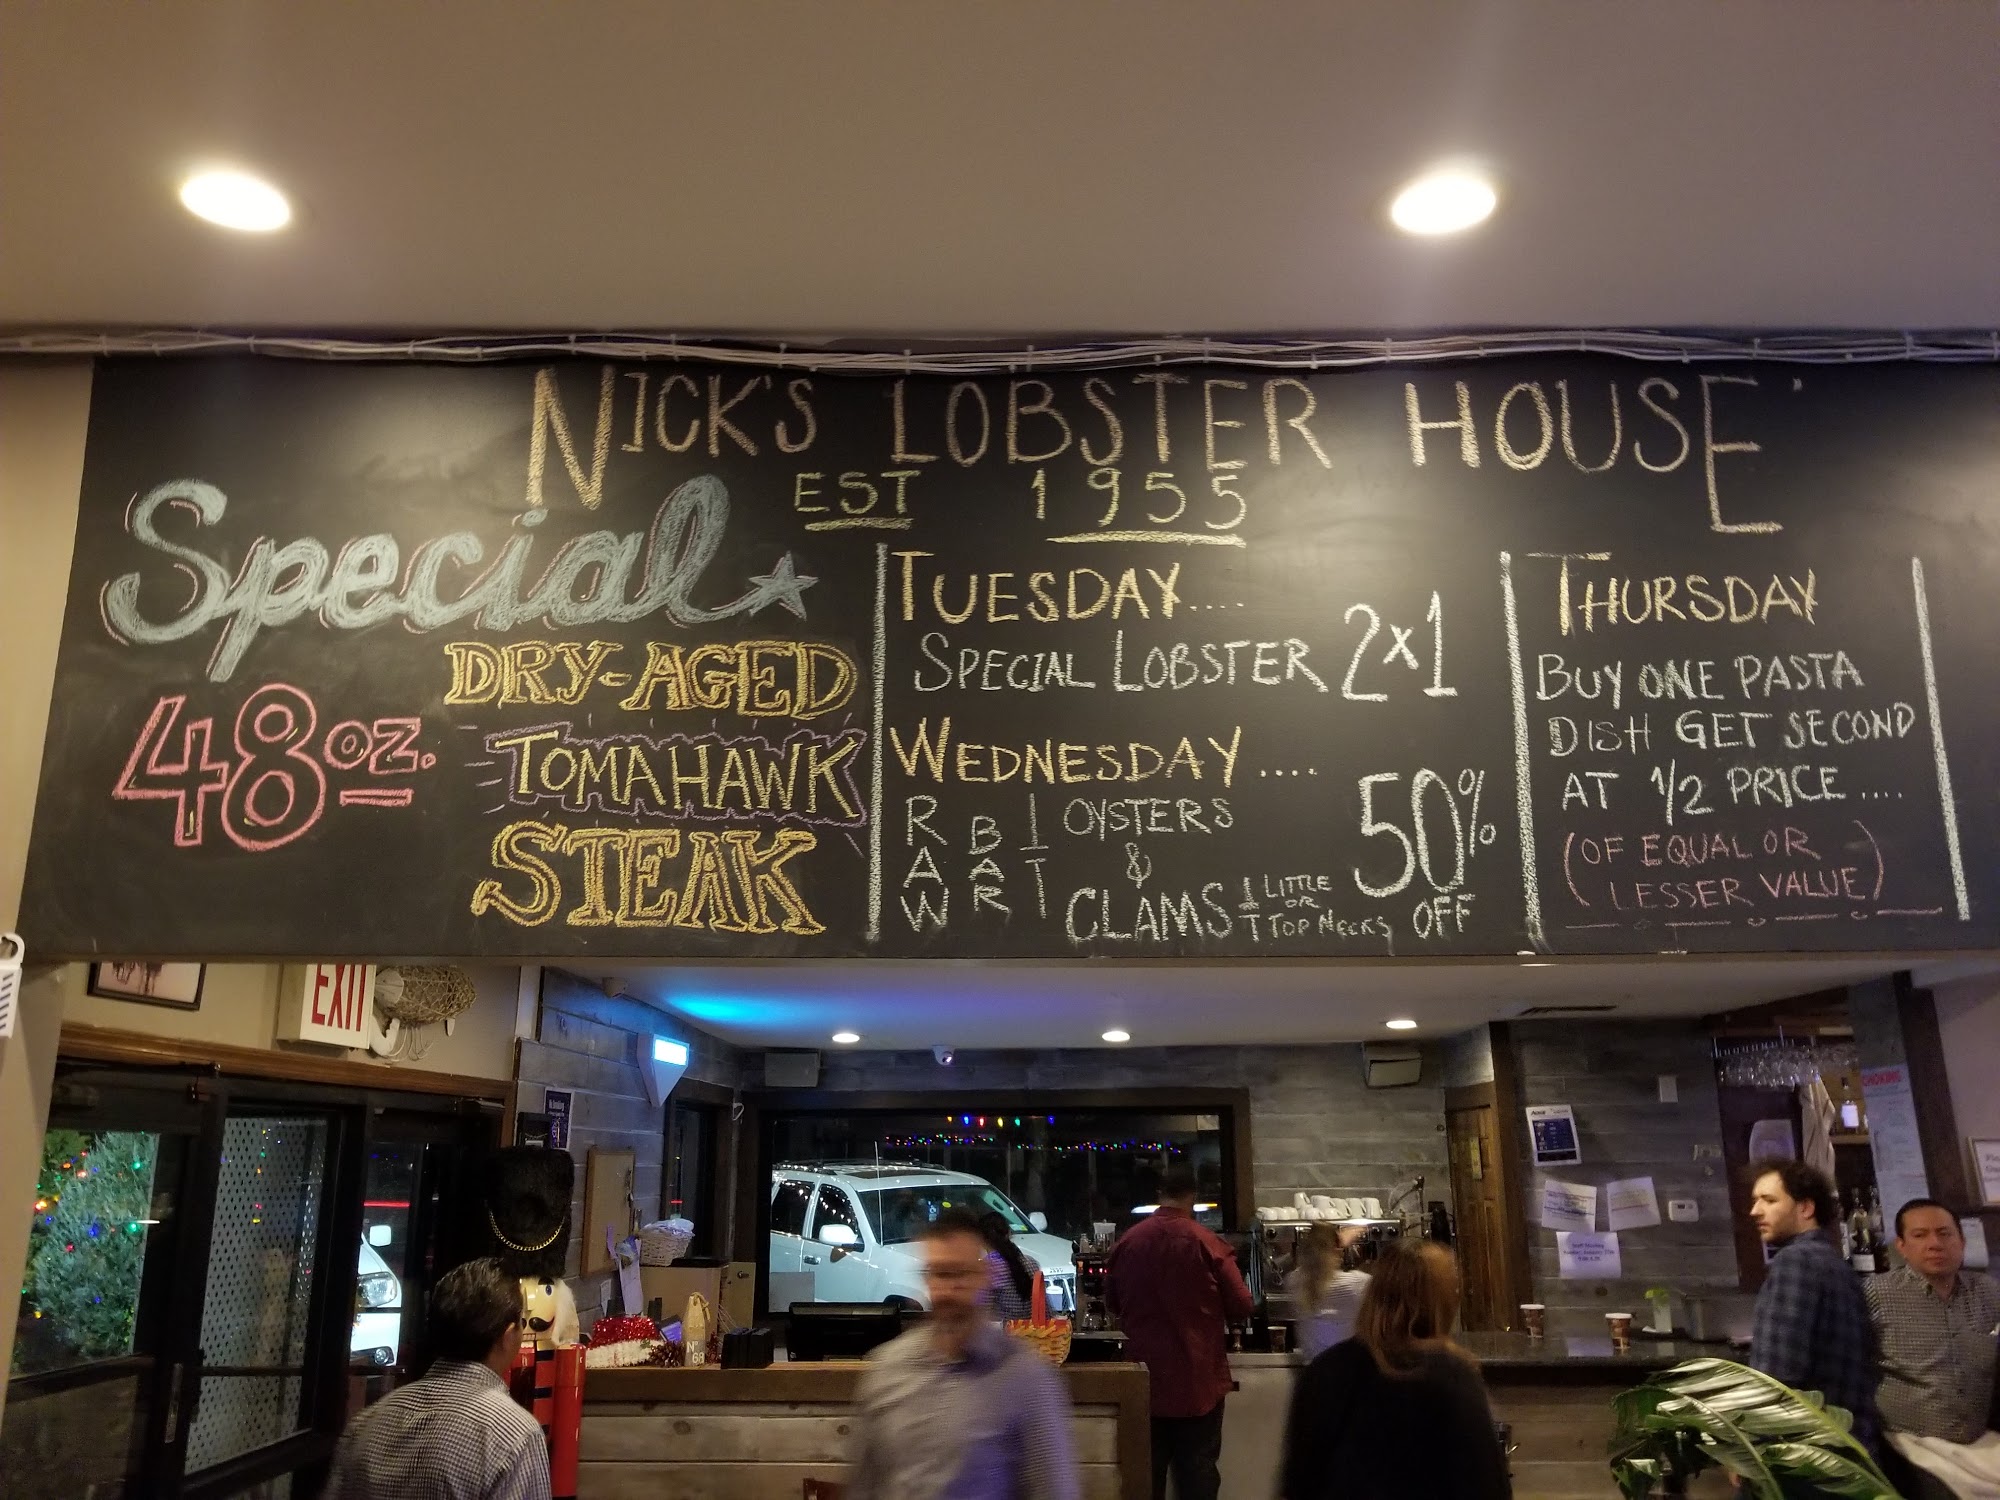 NICK'S LOBSTER HOUSE
EST 1955
Special
48 oz.
DRY-AGED
TOMAHAWK
STEAK
TUESDAY....
SPECIAL LOBSTER 2x1
WEDNESDAY....
RAW BAR
OYSTERS
&
CLAMS
LITTLE
OR
TOP NECKS
50%
OFF
THURSDAY
BUY ONE PASTA
DISH GET SECOND
AT 1/2 PRICE....
(OF EQUAL OR
LESSER VALUE)
EXIT
CHOKING
N°
68